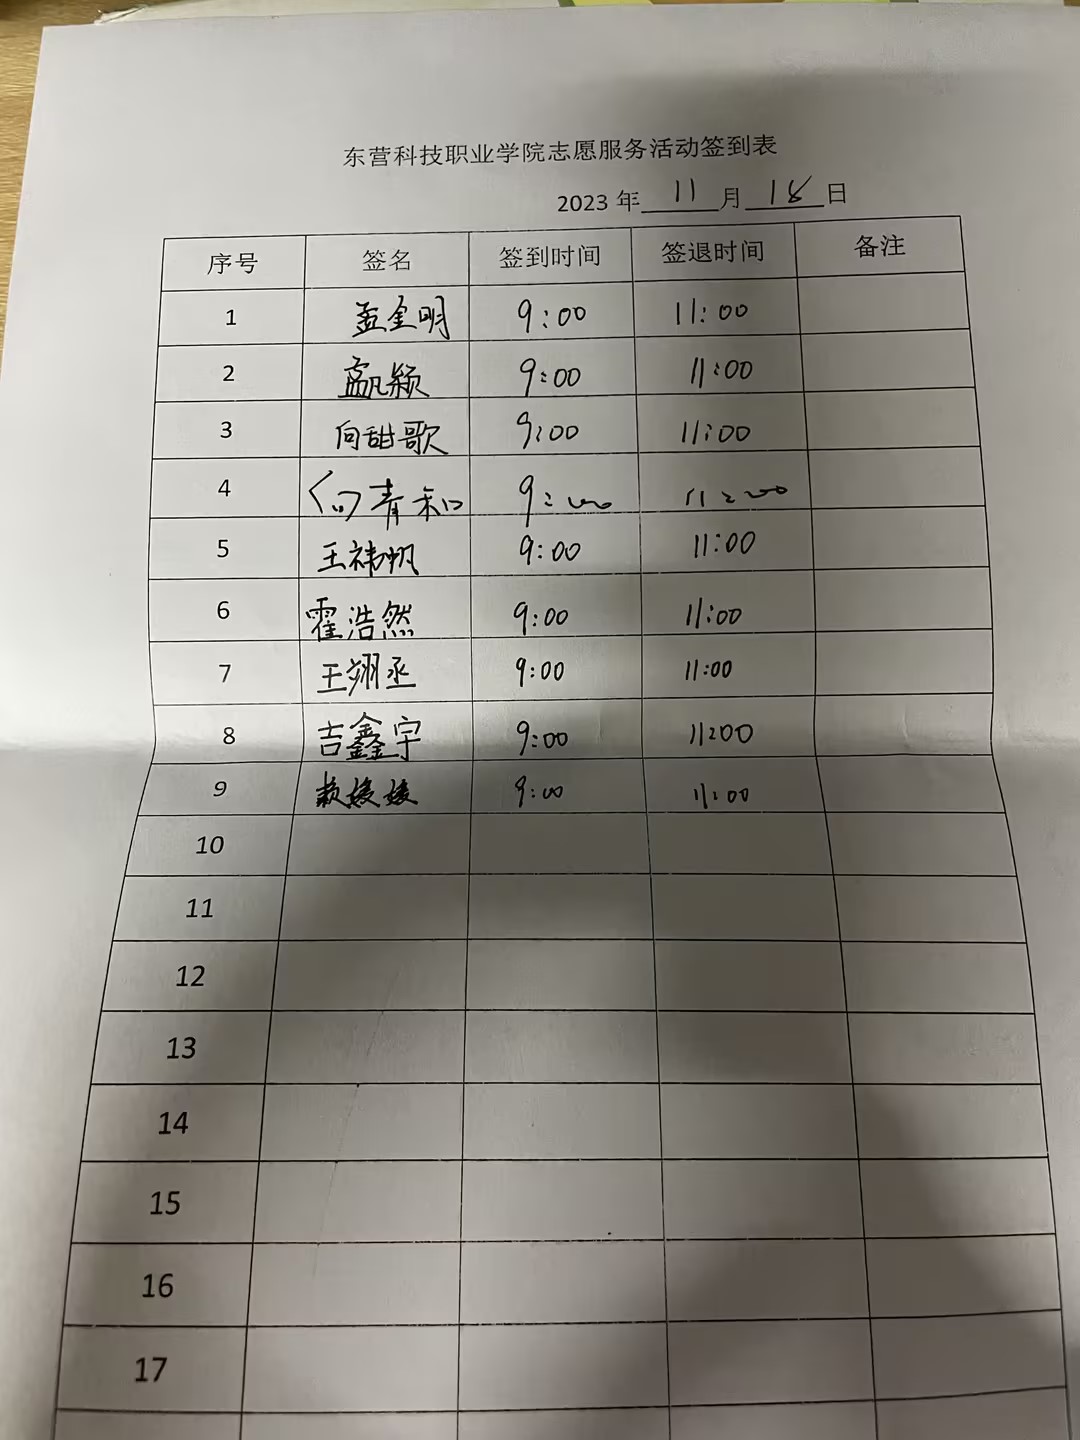 东营科技职业学院志愿服务活动签到表
2023 年 11 月 18 日
序号 签名 签到时间 签退时间 备注
1 孟金明 9:00 11:00
2 颖 9:00 11:00
3 向甜歌 9:00 11:00
4 向青和 9:00 11:00
5 王祎帆 9:00 11:00
6 霍浩然 9:00 11:00
7 王翊丞 9:00 11:00
8 吉鑫宇 9:00 11:00
9 赖媛媛 9:00 11:00
10
11
12
13
14
15
16
17